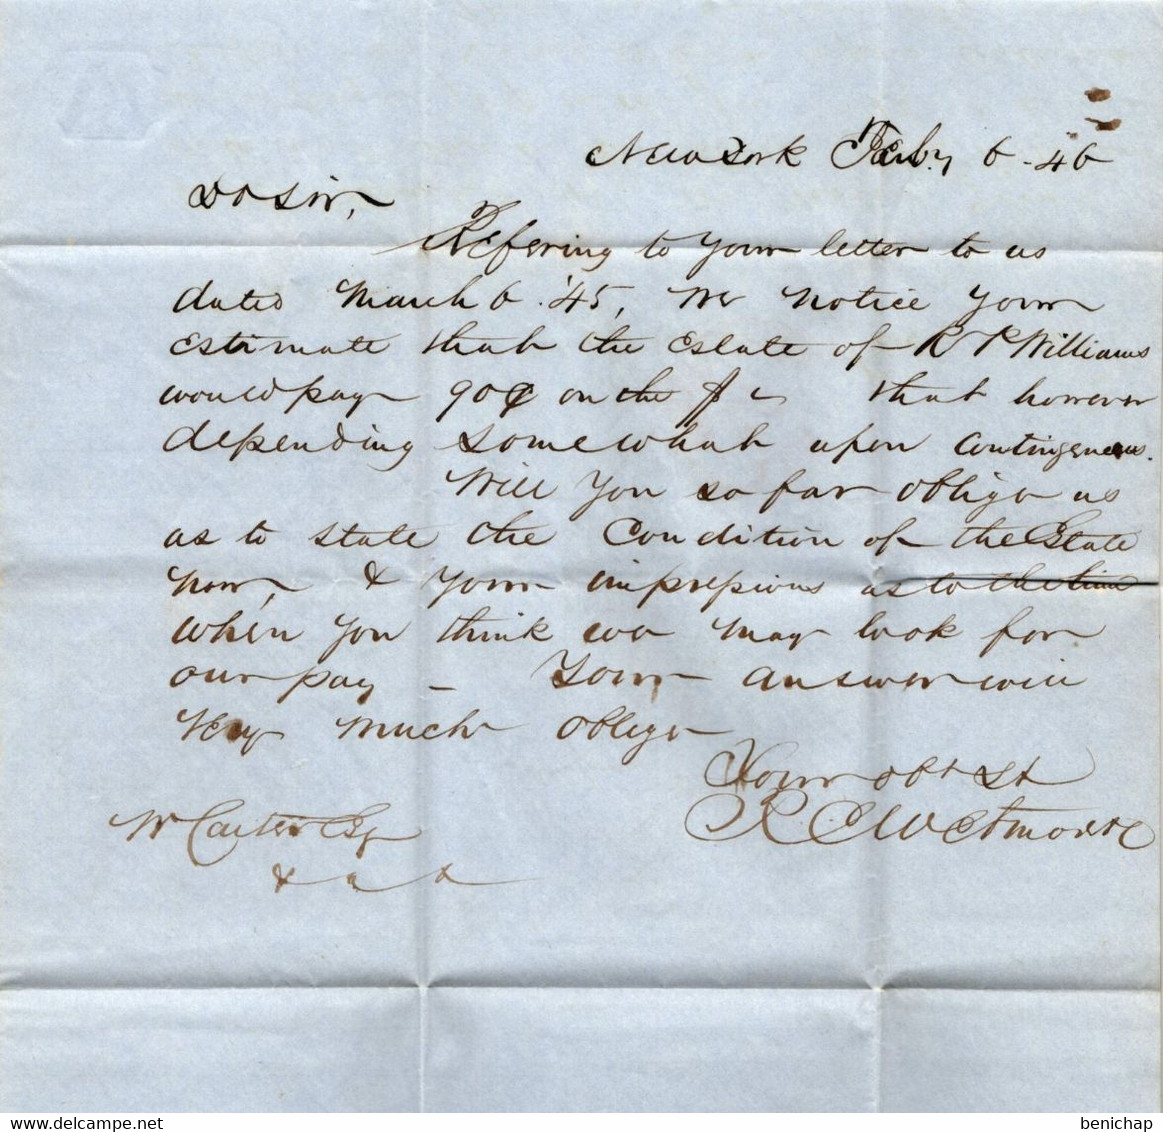 New York Feby 6 - 46
Dr Sir,
Refering to your letter to us
dated March 6. '45, We notice your
estimate that the Estate of R P Williams
would pay 90¢ on the $ — that however
depending somewhat upon contingencies.
Will you so far oblige us
as to state the Condition of the Estate
now, & your impressions as to the time
when you think we may look for
our pay – Your answer will
Very much oblige
Your obt St
R C Wetmore
W Carter Esq
&
delcampe.net
benichap